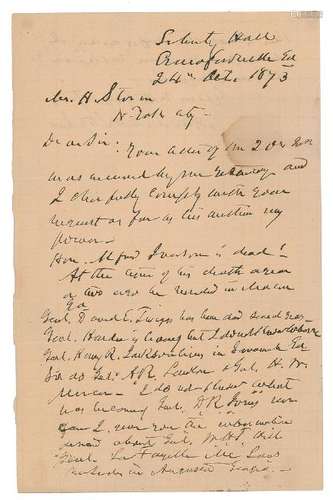 Liberty Hall
Crawfordville Ga
24th Oct. 1873
Mr. H. Storm
N York City
Dear Sir: Your letter of the 2 Oct
was received by me yesterday and
I cheerfully comply with your
request so far as its within my
power
Hon. Alfred Iverson is dead!
At the time of his death a year
or two ago he resided in Macon
Ga
Genl. David E. Twiggs has been dead
Genl. Hardee is living but I do not know where
Genl. Henry R. Jackson lives in Savannah Ga
So do Genl. A R Lawton & Genl. H. W.
Mercer I do not know what
has become Genl.
you I give you the information
about Genl.
Genl. La Fayette Mc Laws
resides in Augusta